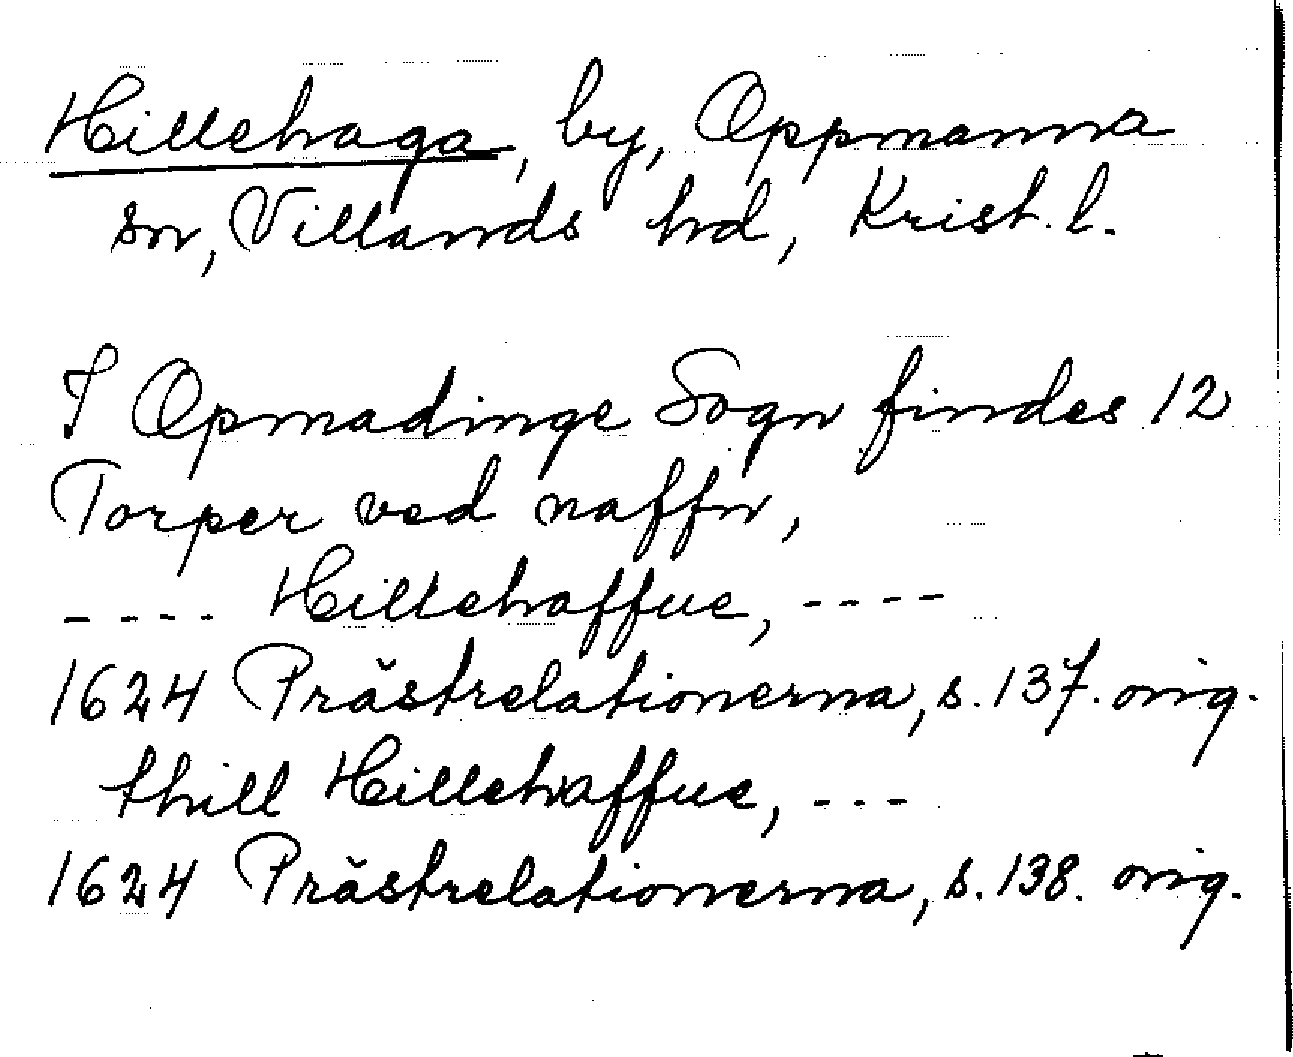 Hillehaga, by, Oppmanna
sn, Villands hd, Krist. l.
I Opmadinge Sogn findes 12
Torper ved naffn,
---- Hillehaffue, ----
1624 Prästrelationerna, s. 137. orig.
thill Hillehaffue, ---
1624 Prästrelationerna, s. 138. orig.